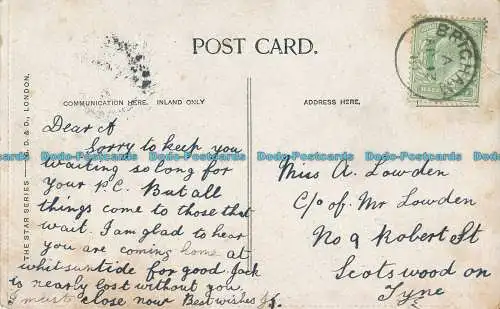 POST CARD.
THE STAR SERIES — G. D. & D., LONDON.
COMMUNICATION HERE. INLAND ONLY
ADDRESS HERE.
BRIGHAM
A
Dear A
Sorry to keep you
waiting so long for
your P.C. But all
things come to those that
wait. I am glad to hear
you are coming home at
whitsuntide for good. Jack
is nearly lost without you.
I must close now Best wishes
Miss A. Lowden
C/o of. Mr Lowden
No 9 Robert St
Scotswood on
Tyne
Dodo-Postcards Dodo-Postcards Dodo-Postcards Dodo-Postcards Dodo-Postcards